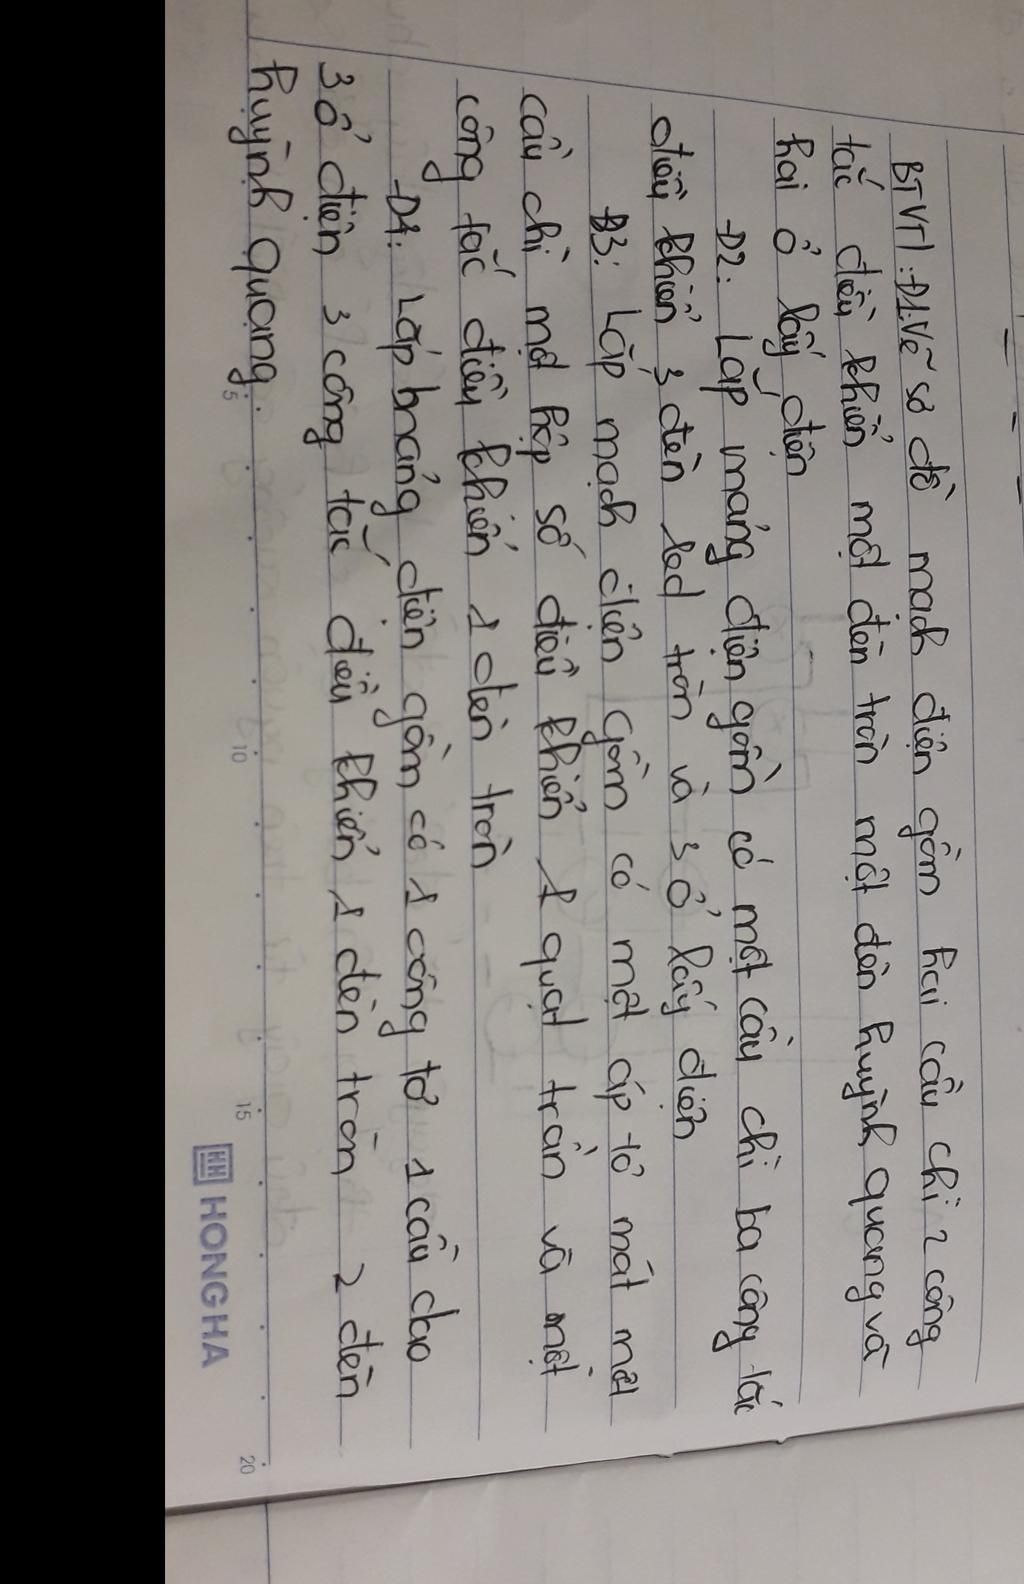 BTVT1: Đ1: Vẽ sơ đồ mạch điện gồm hai cầu chì 2 công
tắc điều khiển một đèn tròn một đèn huỳnh quang và
hai ổ lấy điện
Đ2: Lắp mảng điện gồm có một cầu chì ba công tắc
điều khiển 3 đèn led tròn và 3 ổ lấy điện
Đ3: Lắp mạch điện gồm có một áp tô mát một
cầu chì một hộp số điều khiển 1 quạt trần và một
công tắc điều khiển 1 đèn tròn
Đ4: Lắp bảng điện gồm có 1 công tơ 1 cầu dao
3 ổ điện 3 công tắc điều khiển 1 đèn tròn 2 đèn
huỳnh quang
5 10 15 20
HH HONG HA